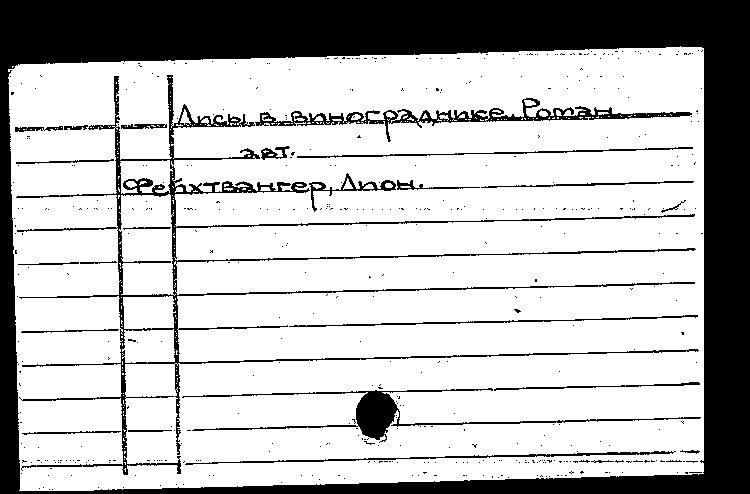 Лисы в винограднике. Роман
авт.
Фейхтвангер, Лион.